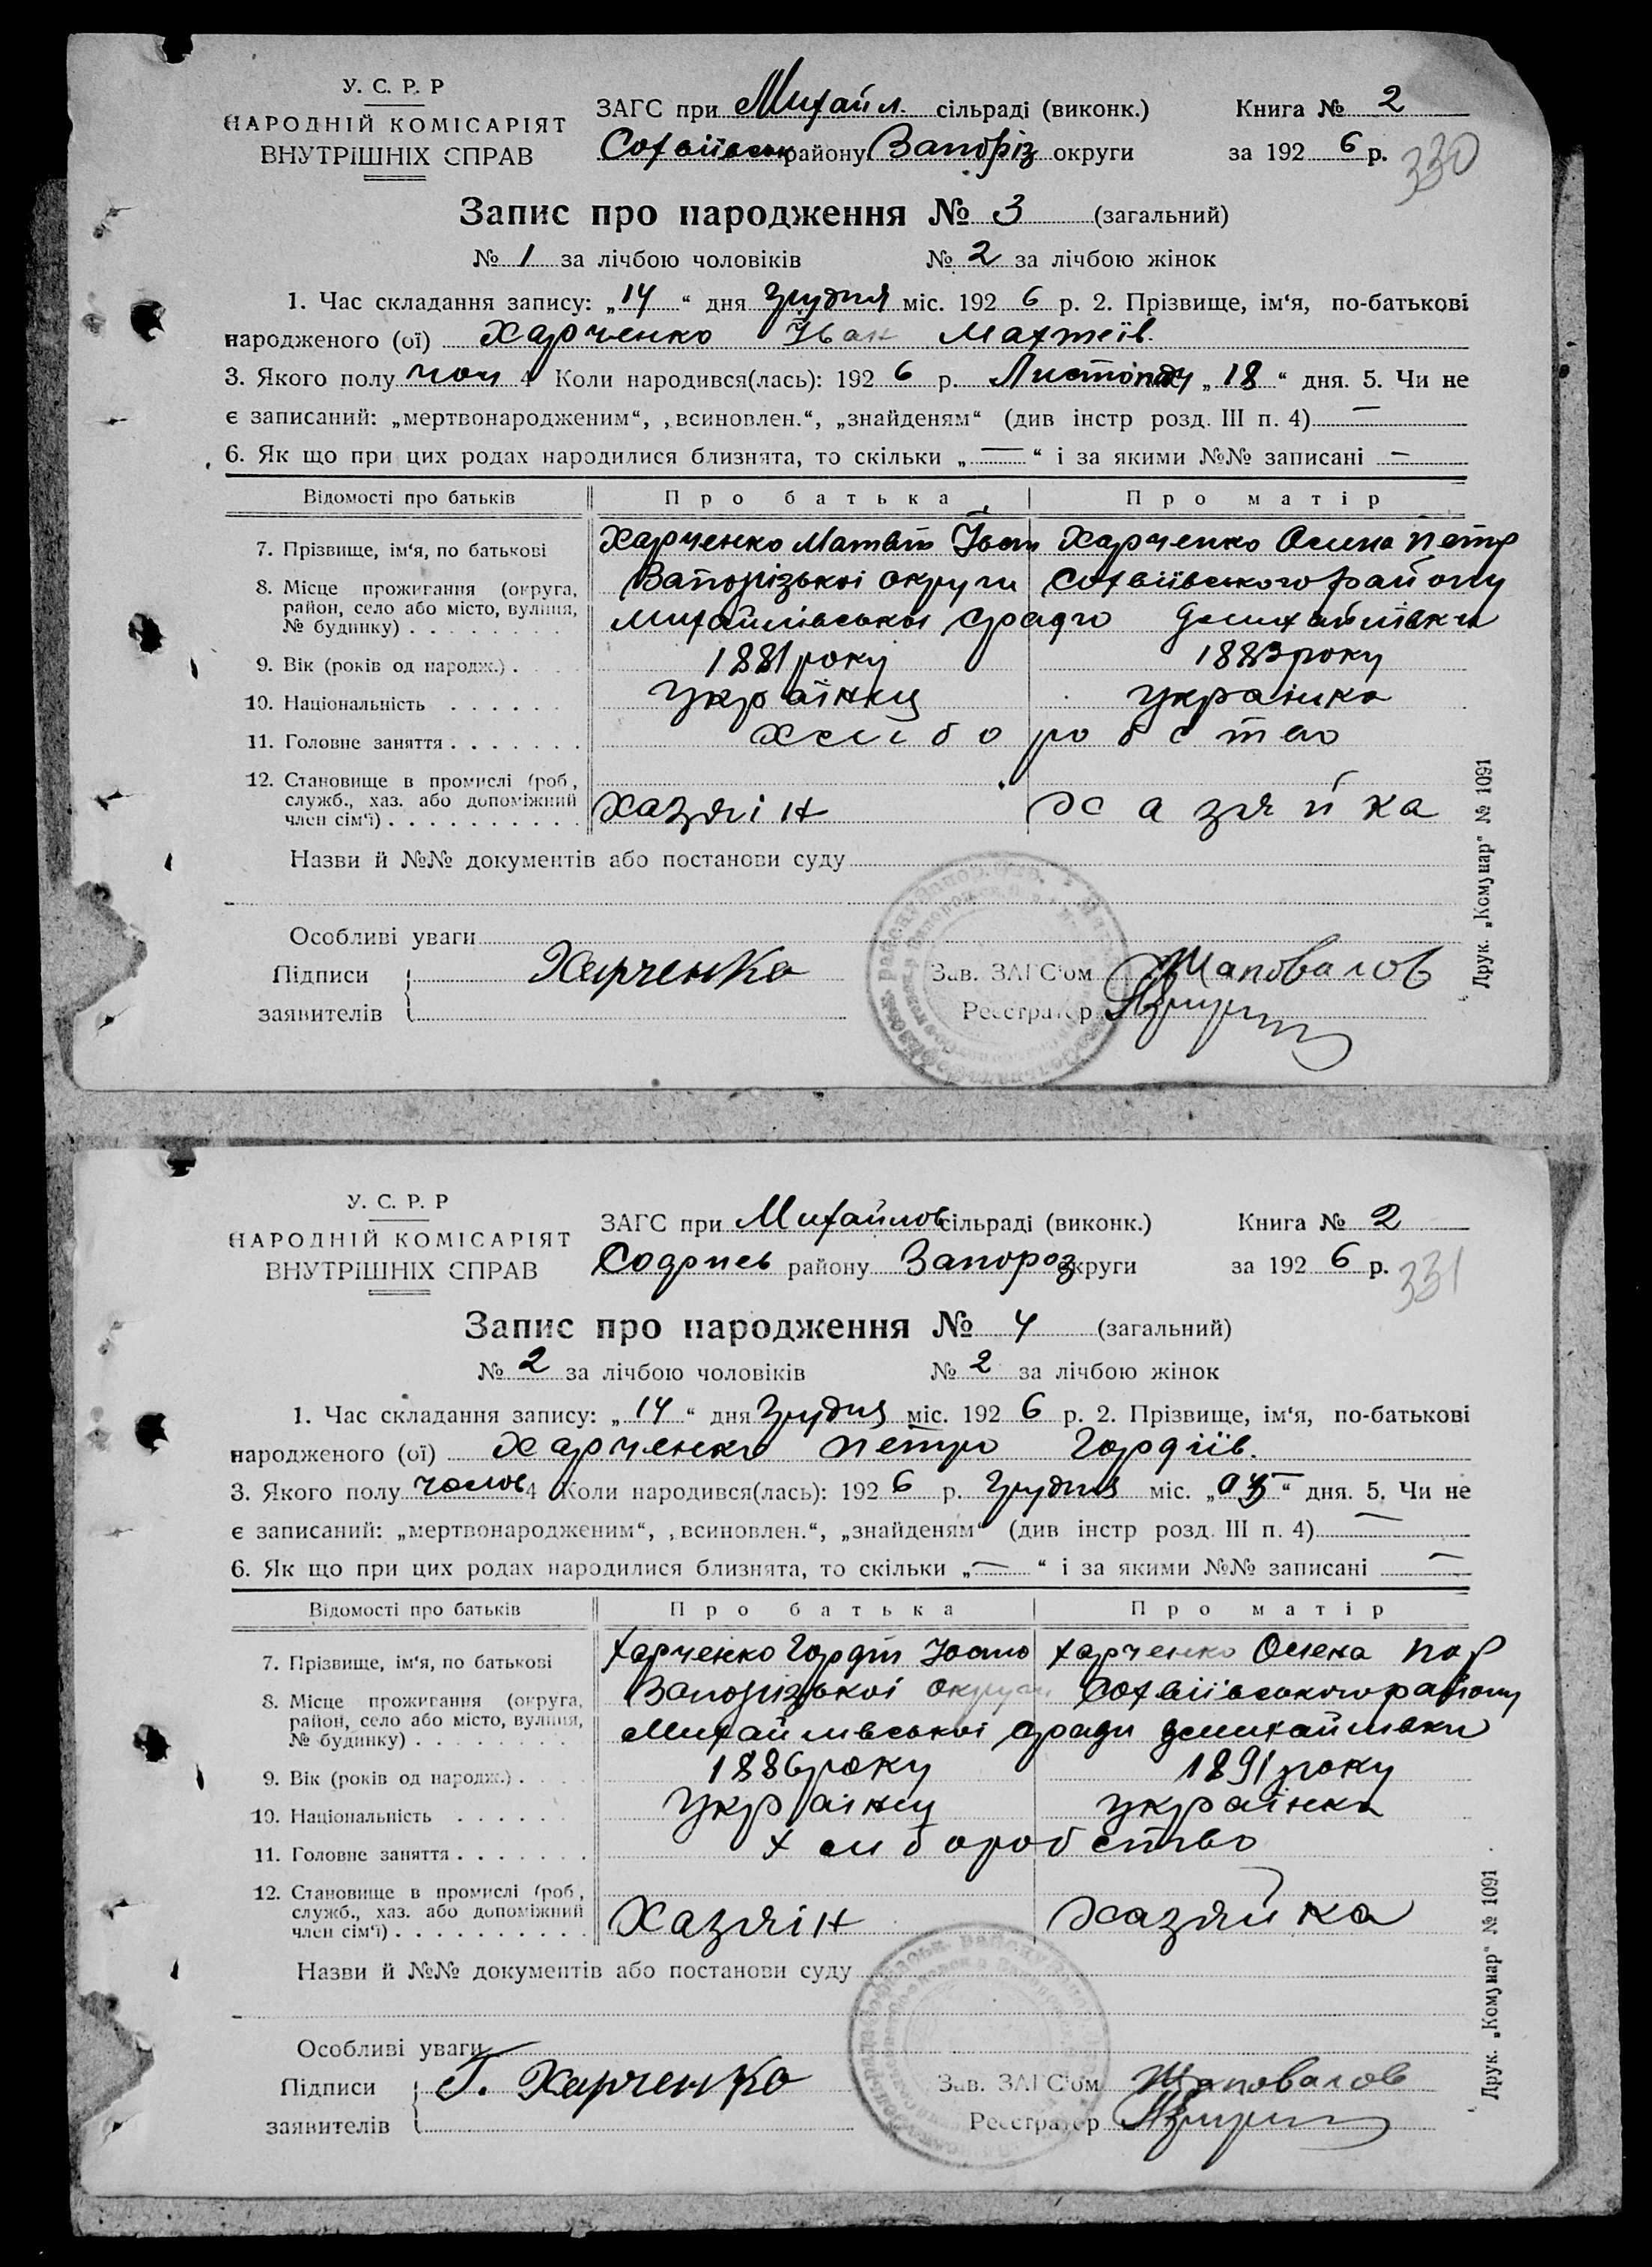 У. С. Р. Р
НАРОДНІЙ КОМІСАРІЯТ
ВНУТРІШНІХ СПРАВ
ЗАГС при Михайл. сільраді (виконк.)
Софвіївськ району Запоріз округи
Книга № 2
за 192 6 р.
330
Запис про народження № 3 (загальний)
№ 1 за лічбою чоловіків № 2 за лічбою жінок
1. Час складання запису: „14“ дня Грудня міс. 192 6 р. 2. Прізвище, ім‘я, по-батькові
народженого (ої) Харченко Іван Матвіїв.
3. Якого полу чол 4 Коли народився(лась): 192 6 р. Листопаду „18“ дня. 5. Чи не
є записаний: „мертвонародженим“, „всиновлен.“, „знайденям“ (див інстр розд. III п. 4) —
6. Як що при цих родах народилися близнята, то скільки „—“ і за якими №№ записані —
Відомості про батьків Про батька Про матір
7. Прізвище, ім‘я, по батькові Харченко Матвій Іван Харченко Олена Петр
8. Місце прожигання (округа, район, село або місто, вулиця, № будинку) Запорізької округи Софвіївського району
Михайлівської с/ради
9. Вік (років од народж.) 1881 року 1883 року
10. Національність Українец українка
11. Головне заняття хлиборобство
12. Становище в промислі (роб, служб., хаз. або допоміжний член сім‘ї) хазяін хазяйка
Назви й №№ документів або постанови суду
Особливі уваги
Підписи Харченко Зав. ЗАГС‘ом Шаповалов
заявителів Реєстратор
Друк. „Комунар“ № 1091
У. С. Р. Р
НАРОДНІЙ КОМІСАРІЯТ
ВНУТРІШНІХ СПРАВ
ЗАГС при Михайлов сільраді (виконк.)
району Запороз округи
Книга № 2
за 192 6 р.
331
Запис про народження № 4 (загальний)
№ 2 за лічбою чоловіків № 2 за лічбою жінок
1. Час складання запису: „14“ дня Грудня міс. 192 6 р. 2. Прізвище, ім‘я, по-батькові
народженого (ої) Харченко Петро Гордіїв.
3. Якого полу чолов 4 Коли народився(лась): 192 6 р. Грудня міс. дня. 5. Чи не
є записаний: „мертвонародженим“, „всиновлен.“, „знайденям“ (див інстр розд. III п. 4) —
6. Як що при цих родах народилися близнята, то скільки „—“ і за якими №№ записані —
Відомості про батьків Про батька Про матір
7. Прізвище, ім‘я, по батькові Харченко Гордій Івано Харченко Олена
8. Місце прожигання (округа, район, село або місто, вулиця, № будинку) Запорізької округи Софвіївського району
Михайлівської с/ради
9. Вік (років од народж.) 1886 року 1891 року
10. Національність Українец українка
11. Головне заняття хлиборобство
12. Становище в промислі (роб, служб., хаз. або допоміжний член сім‘ї) Хазяін хазяйка
Назви й №№ документів або постанови суду
Особливі уваги
Підписи Г. Харченко Зав. ЗАГС‘ом Шаповалов
заявителів Реєстратор
Друк. „Комунар“ № 1091